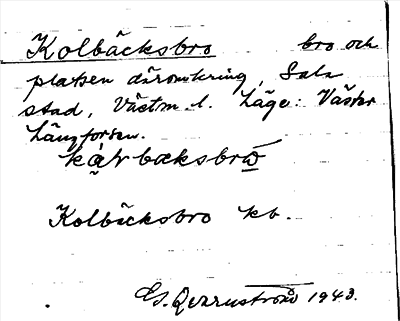 Kolbäcksbro bro och
platsen däromkring, Sala
stad, Västm. l. Läge: Väster
Långforsen.
Kolbäcksbro kb.
1943.